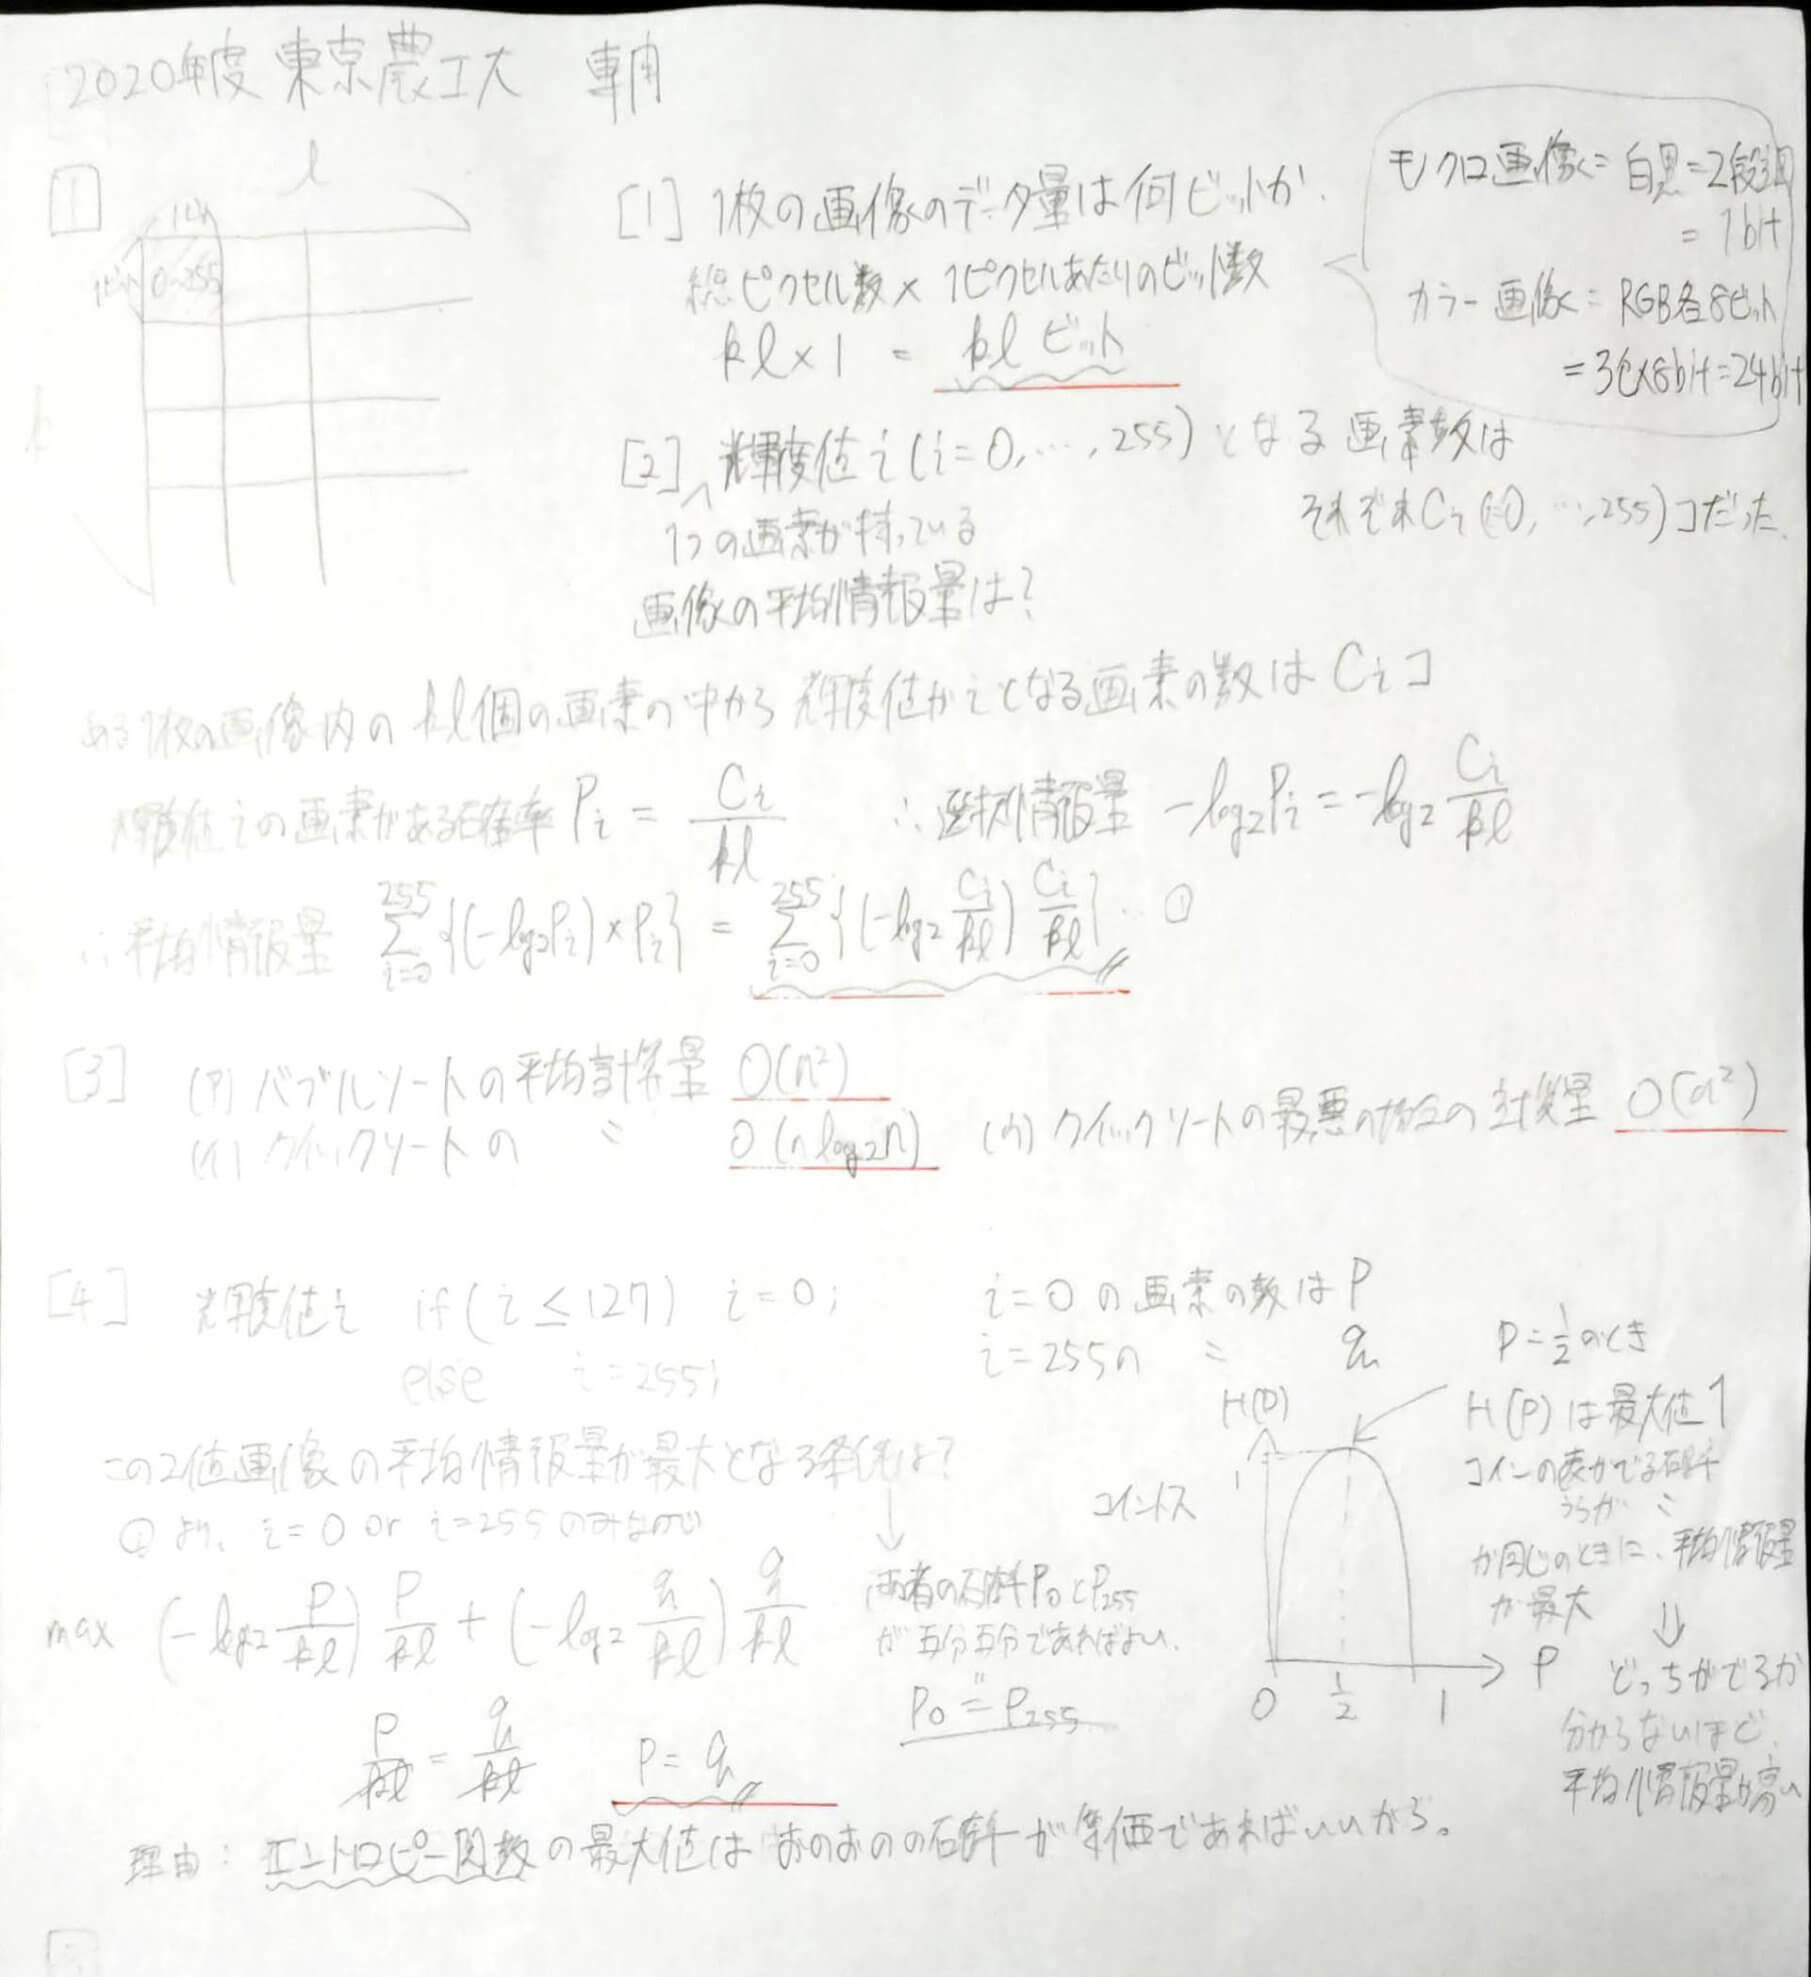 2020年度 東京農工大 専門
1
l
1ピクセル
0~255
k
[1] 1枚の画像のデータ量は何ビットか.
総ピクセル数 × 1ピクセルあたりのビット数
kl×1 = kl ビット
モノクロ画像 = 白黒=2段調
= 1bit
カラー画像 = RGB各8ビット
= 3色×8bit=24bit
[2] 輝度値 i (i=0, …, 255) となる画素数は
それぞれ Ci (i=0, …, 255) コだった.
1つの画素が持っている
画像の平均情報量は?
ある1枚の画像内の kl個の画素の中から 輝度値がiとなる画素の数は Ci コ
輝度値 i の画素がある確率 Pi = Ci/kl ∴ 選択情報量 -log₂Pi = -log₂ Ci/kl
∴ 平均情報量 Σ_{i=0}^{255} {(-log₂Pi)×Pi} = Σ_{i=0}^{255} {(-log₂ Ci/kl) Ci/kl} … ①
[3] (ア) バブルソートの平均計算量 O(n²)
(イ) クイックソートの 〃 O(n log₂n) (ウ) クイックソートの最悪の場合の計算量 O(n²)
[4] 輝度値 i if (i ≤ 127) i=0;
else i=255;
i=0 の画素の数は P
i=255の 〃 q
この2値画像の平均情報量が最大となる条件は?
①より、i=0 or i=255 のみなので
max (-log₂ P/kl) P/kl + (-log₂ q/kl) q/kl
↓
両者の確率 P₀ と P₂₅₅
が五分五分であればよい.
P₀ = P₂₅₅
P/kl = q/kl P = q
コイントス
H(P)
1
0 1/2 1 P
P=1/2 のとき
H(P) は最大値 1
コインの表がでる確率
うらが 〃
が同じのときに、平均情報量
が最大
↓
どっちがでるか
分からないほど、
平均情報量が高い
理由: エントロピー関数の最大値は おのおのの確率が等価であればいいから。